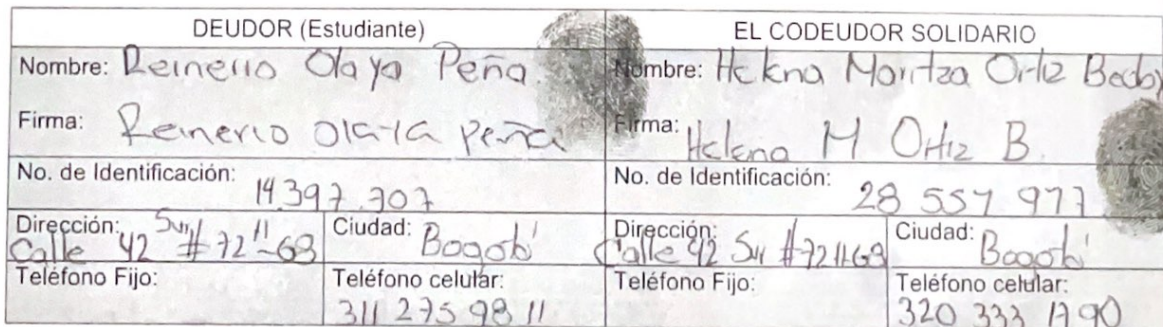 DEUDOR (Estudiante)
EL CODEUDOR SOLIDARIO
Nombre: Reinerio Olaya Peña
Nombre: Helena Maritza Ortiz
Firma: Reinerio Olaya peña
Firma: Helena M Ortiz B.
No. de Identificación: 14.397.707
No. de Identificación: 28 557 977
Dirección: Calle 42 Sur # 72 11-69
Ciudad: Bogotá
Dirección: Calle 42 Sur #72 11 69
Ciudad: Bogotá
Teléfono Fijo:
Teléfono celular: 311 275 98 11
Teléfono Fijo:
Teléfono celular: 320 333 1790